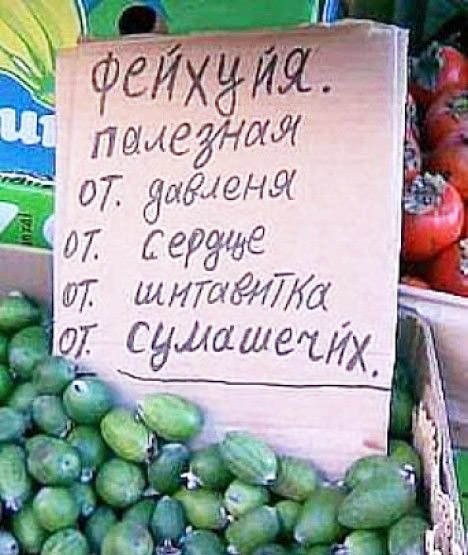 Фейхуйя.
палезная
от. давленя
от. сердце
от. шитавитка
от. сумашечйх.